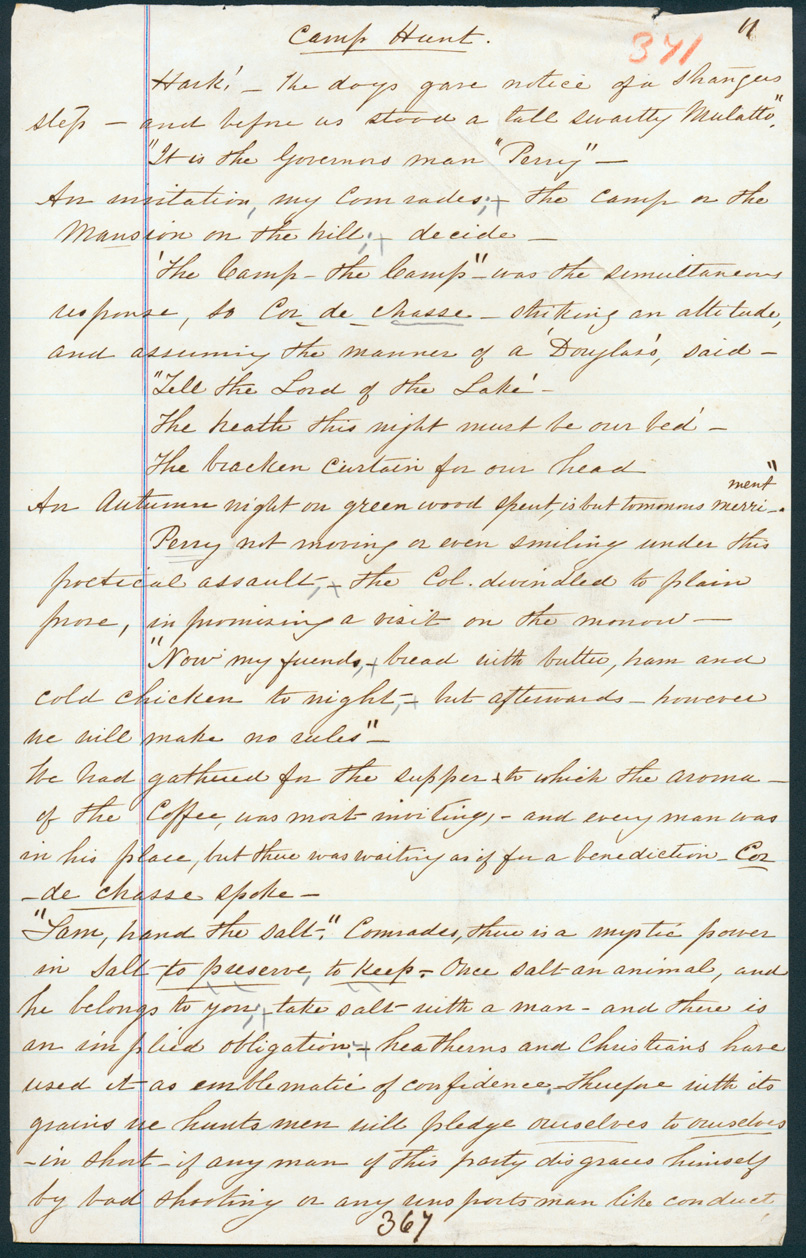 Camp Hunt.
371
11
Hark! — The dogs gave notice of a strangers
step — and before us stood a tall swartly Mulatto,"
"It is the Governors man "Perry" —
An invitation, my Comrades; — the Camp or the
Mansion on the hill; — decide —
'The Camp — the Camp" — was the simultaneous
response, so Cor de chasse — striking an attitude,
and assuming the manner of a 'Douglass', said —
"Tell the Lord of the Lake' —
The heath this night must be our bed' —
The bracken curtain for our head
ment"
An Autumn night on green wood spent, is but tomorrows merri-.
Perry not moving or even smiling under this
poetical assault, — the Col. dwindled to plain
prose, in promising a visit on the morrow —
"Now my friends, — bread with butter, ham and
cold chicken to night, — but afterwards — however
we will make no rules" —
We had gathered for the supper to which the aroma —
of the Coffee, was most inviting, — and every man was
in his place, but there was waiting as if for a benediction — Cor
— de chasse spoke —
"Sam, hand the salt." Comrades, there is a mystic power
in salt to preserve, to keep — Once salt an animal, and
he belongs to you; — take salt with a man — and there is
an implied obligation: — heatherns and Christians have
used it as emblematic of confidence, — therefore with its
grains we hunts men will pledge ourselves to ourselves
— in short — if any man of this party disgraces himself
by bad shooting or any uns ports man like conduct,
367